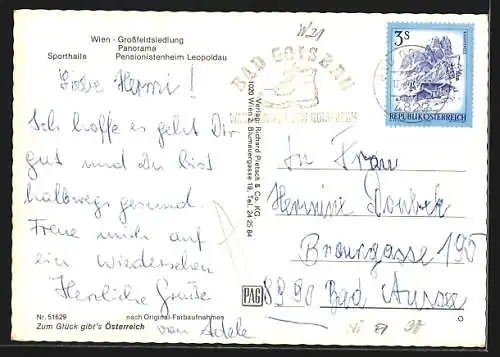 Wien - Großfeldsiedlung
Panorama
Sporthalle Pensionistenheim Leopoldau
W21
Liebe Hermi!
Ich hoffe es geht Dir
gut und du bist
halbwegs gesund.
Freue mich auf
ein Wiedersehen
Herzliche Grüße
von Adele
Nr. 51629 nach Original-Farbaufnahmen
Zum Glück gibt's Österreich
Verlag: Richard Pietsch & Co. KG.
1020 Wien Blumauergasse 19, Tel. 24 25 84
PAG
BAD GOISERN
3 S
REPUBLIK ÖSTERREICH
An Frau
Hermine
195
8990 Bad Aussee